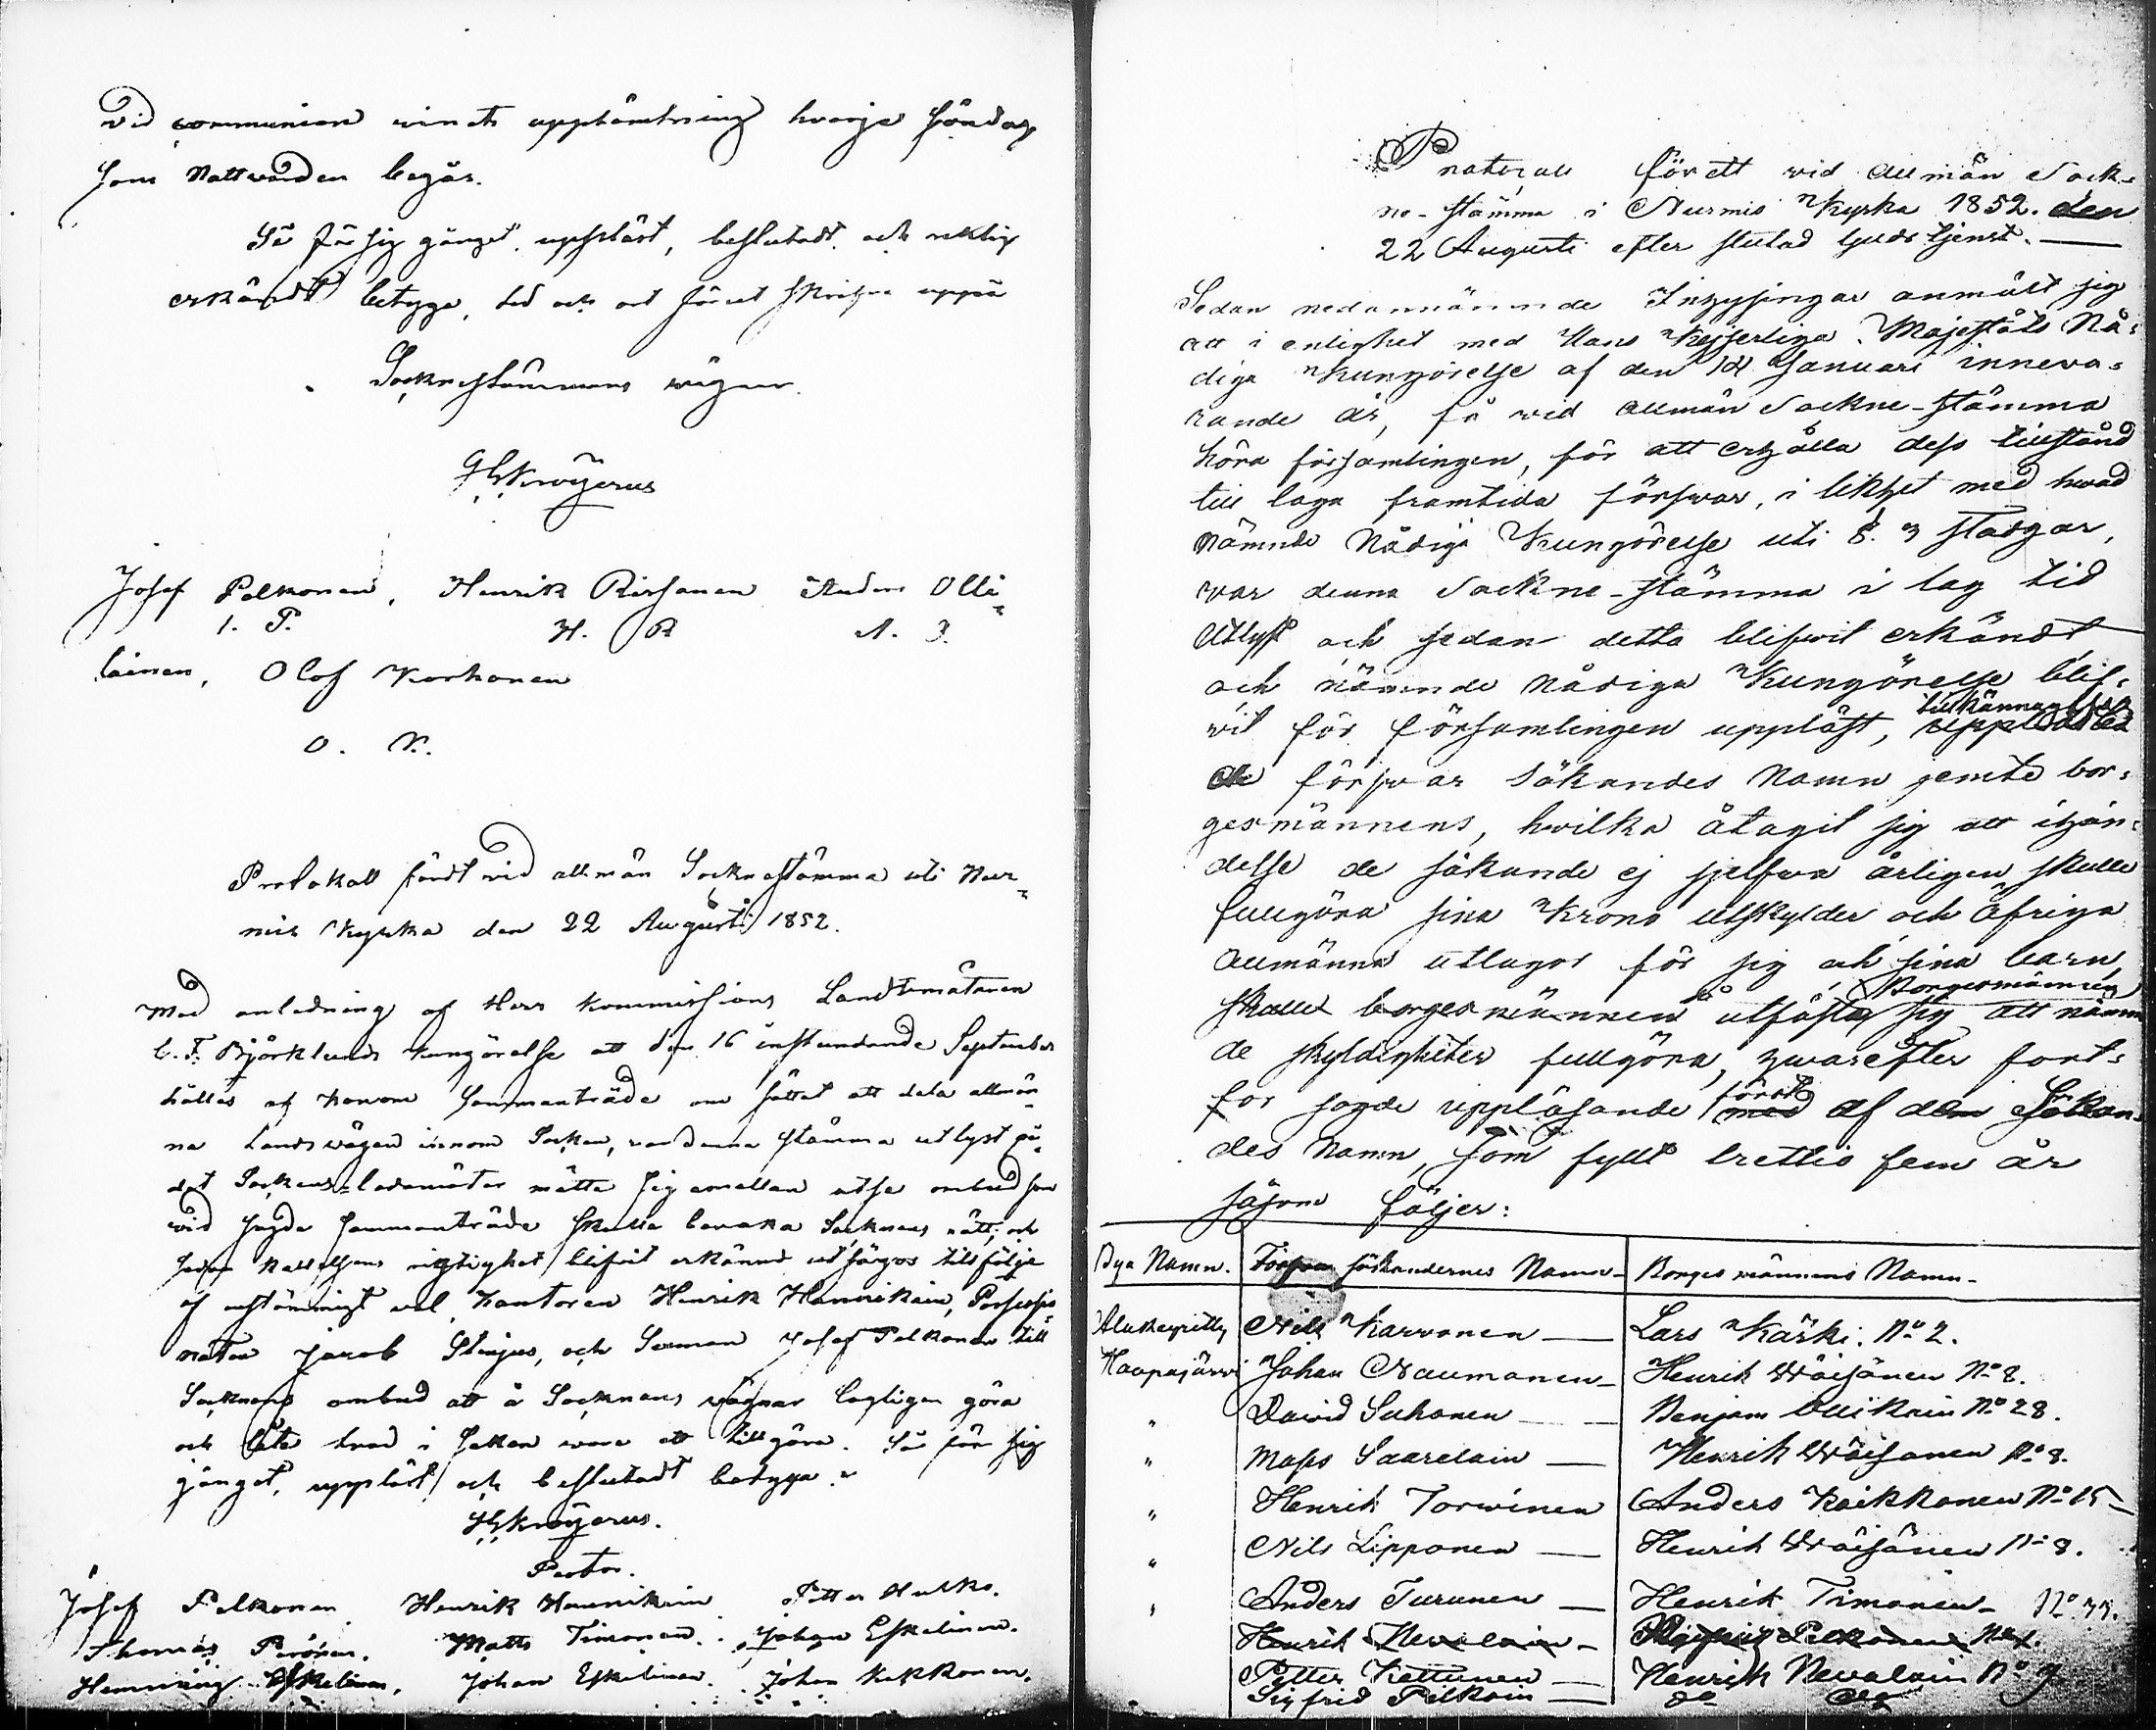 Vid communion vinets upphämtning hvarje Söndag
som Nattvarden begås.
Så för sig gånget, uppläst, beslutadt och riktigt
erkändt betyga, tid och ort förut skrifne uppå
Socknestämmans wägnar
Josef Pelkonen, Henrik Rissanen Anders Olli-
I. P. H. R A. O.
lainen, Olof Korhonen
O. K.
Protokoll fördt vid allmän Socknestämma uti Nur-
mis Kyrka den 22 Augusti 1852.
Med anledning af Herr Kommissions Landtmätaren
C. F. Björklunds kungörelse att den 16 instundande September
hålles af honom sammanträde om sättet att dela allmän-
na Landsvägen innom Socken, var denna Stämma utlyst på
det Sockens-ledamöter måtte sig emellan utse ombud som
vid sagde sammanträde skulle bevaka Socknens rätt; och
sedan kallelsens rigtighet blifvit erkänd utsågos till följe
af enstämmigt val, Kantoren Henrik Hannikain, Possessio-
naten Jacob Stenius, och Sexman Josef Pelkonen till
Socknens ombud att å Socknens vägnar lagligen göra
och låta hvad i saken vara att tillgöra. Så för sig
gånget, uppläst och beslutadt betyga.
Pastor.
Josef Pelkonen Henrik Hannikain Petter Hulko.
Thomas Piröinen. Matts Timonen. Johan Eskelinen.
Henning Eskelinen, Johan Eskelinen. Johan Kekkonen.
Protocoll fördt vid allmän Sock-
ne-stämma i Nurmis Kyrka 1852. den
22 Augusti efter slutad Gudstjenst.
Sedan nedannämnde Inhysingar anmält sig
att i enlighet med Hans Kejserliga Majestäts Nå-
diga Kungörelse af den 14 Januari inneva-
rande år, få vid allmän Sockne-stämma
höra församlingen, för att erhålla dess tillstånd
till laga framtida försvar, i likhet med hvad
nämnde Nådiga Kungörelse uti §. 3 stadgar,
var denna Sockne-stämma i lag tid
utlyst och sedan detta blifvit erkändt
och nämnde nådiga Kungörelse blif-
tillkännagifves
vit för församlingen uppläst, upplästes
de försvar sökandes namn jemte bor-
gesmännens, hvilka åtagit sig att i hän-
delse de sökande ej sjelfva årligen skulle
fullgöra sina Krono utskylder och öfriga
allmänna utlagor för sig och sina barn,
Borgesmännen
skulle borgesmännen utfästa sig att nämn
de skyldigheter fullgöra, hvarefter fort-
först
for sagde uppläsande med af dem Sökan-
des namn, som fyllt trettio fem år
såsom följer:
Bya Namn. Försvar sökandernes Namn- Borgesmännens Namn-
Nils Karvonen — Lars Kärki. No 2.
Haapajärvi Johan Naumanen — Henrik Wäisänen No 8.
" David Suhonen — Benjam Ollikain No 28.
" Mats Saarelain — Henrik Wäisänen No 8.
" Henrik Torvinen Anders Kaikkonen No 15
" Nils Lipponen — Henrik Wäisänen No 8.
" Anders Turunen — Henrik Timonen — No 33.
Henrik Nevalain — Sigfrid Pelkonen
Petter Kettunen — Henrik Nevalain No 7
Sigfrid Pelkoin — do do